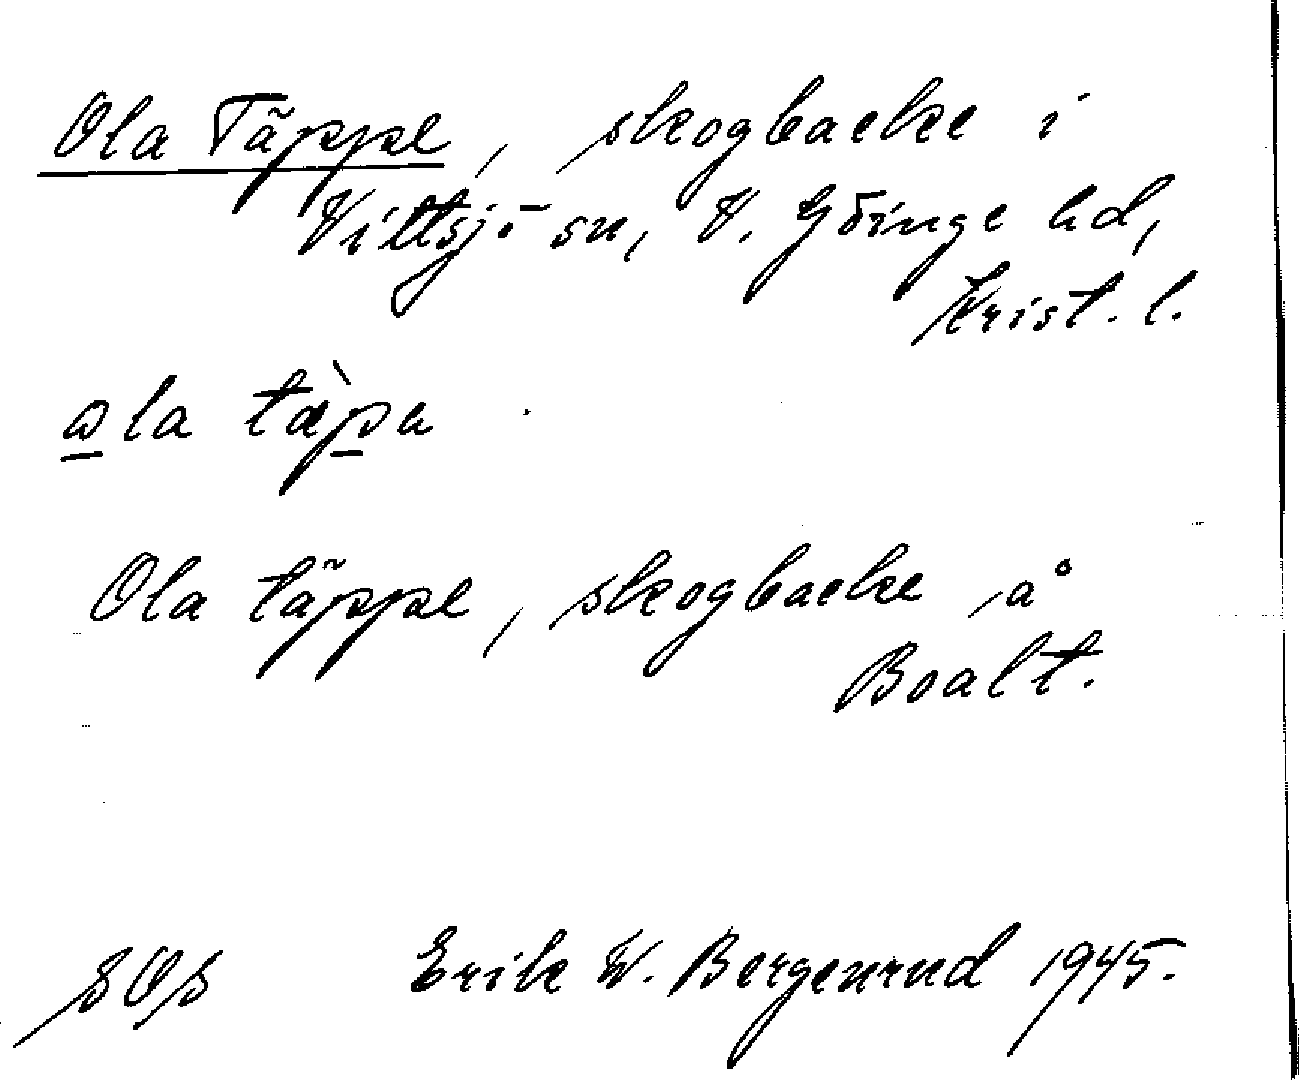 Ola Täppe, skogbacke i
Vittsjö sn, V. Göinge hd,
Krist. l.
ola tæ̀pa
Ola täppe, skogbacke å
Boalt.
SOS Erik W. Bergenrud 1945.